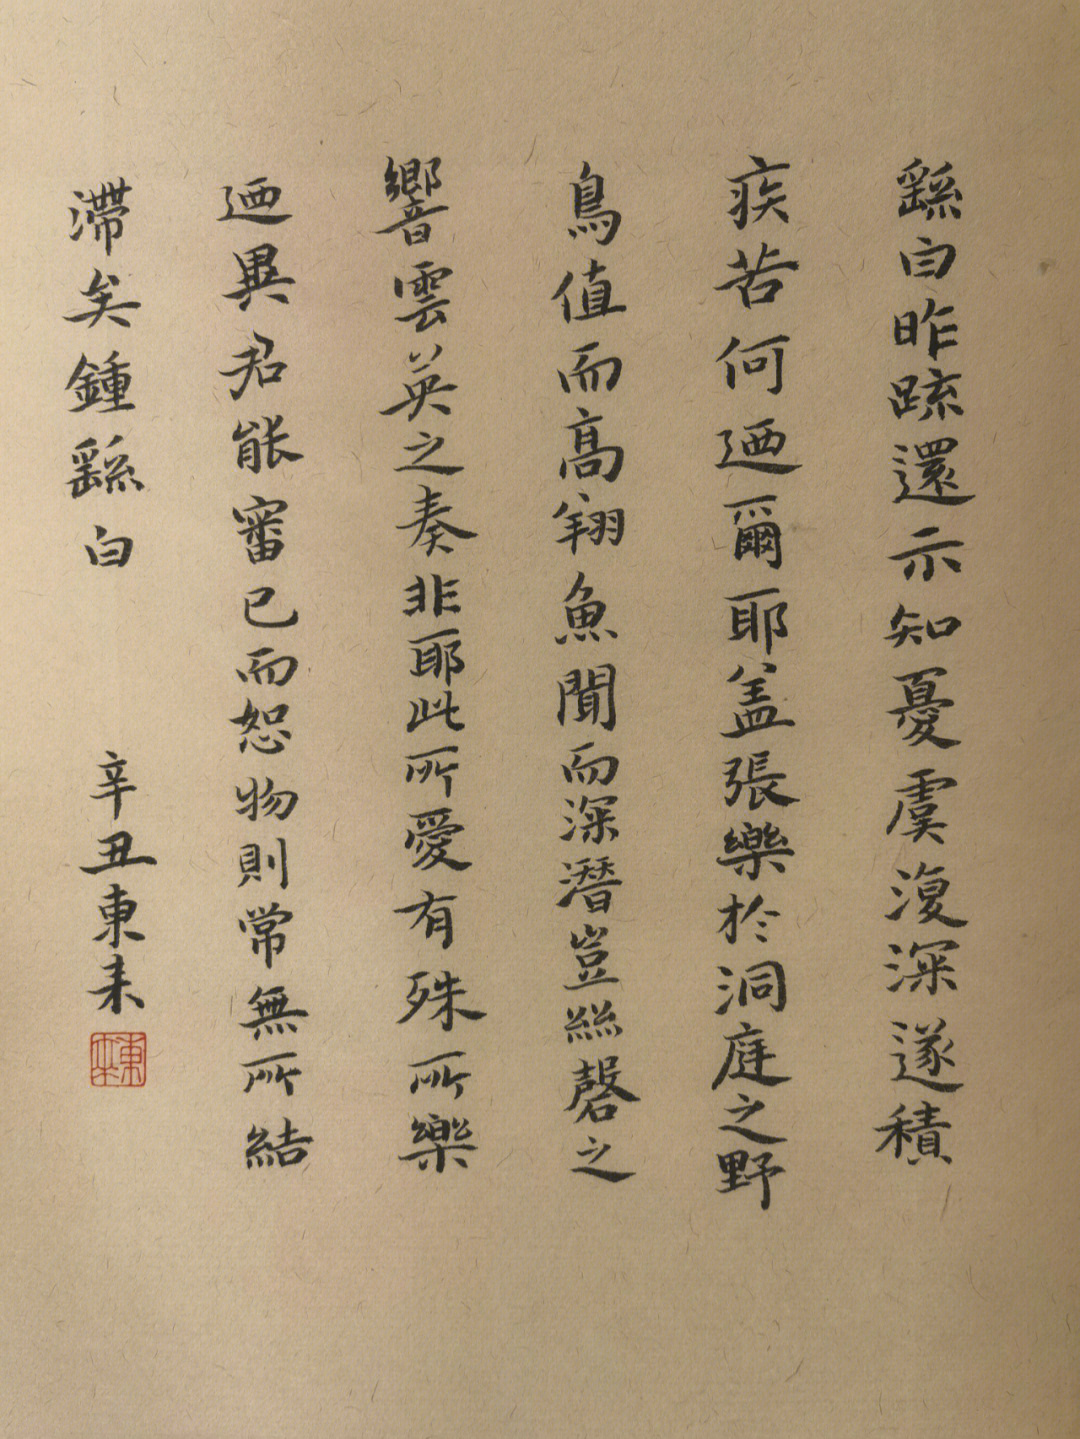 繇白昨疏還示知憂虞復深遂積
疾苦何迺爾耶蓋張樂於洞庭之野
鳥值而高翔魚聞而深潛豈絲磬之
響雲英之奏非耶此所愛有殊所樂
迺異君能審己而恕物則常無所結
滯矣鍾繇白
辛丑東耒
東耒